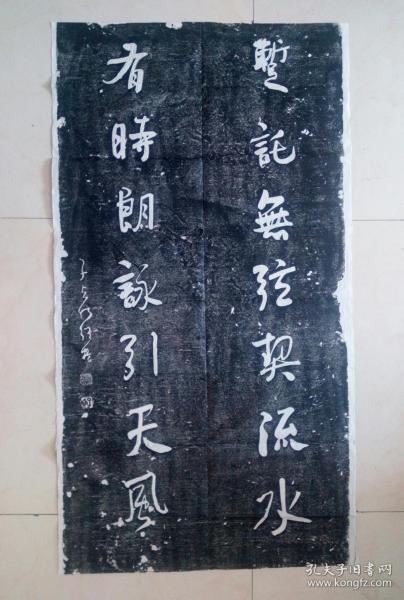 蹔託無弦契流水
有時朗詠引天風
孔夫子旧书网
www.kongfz.com